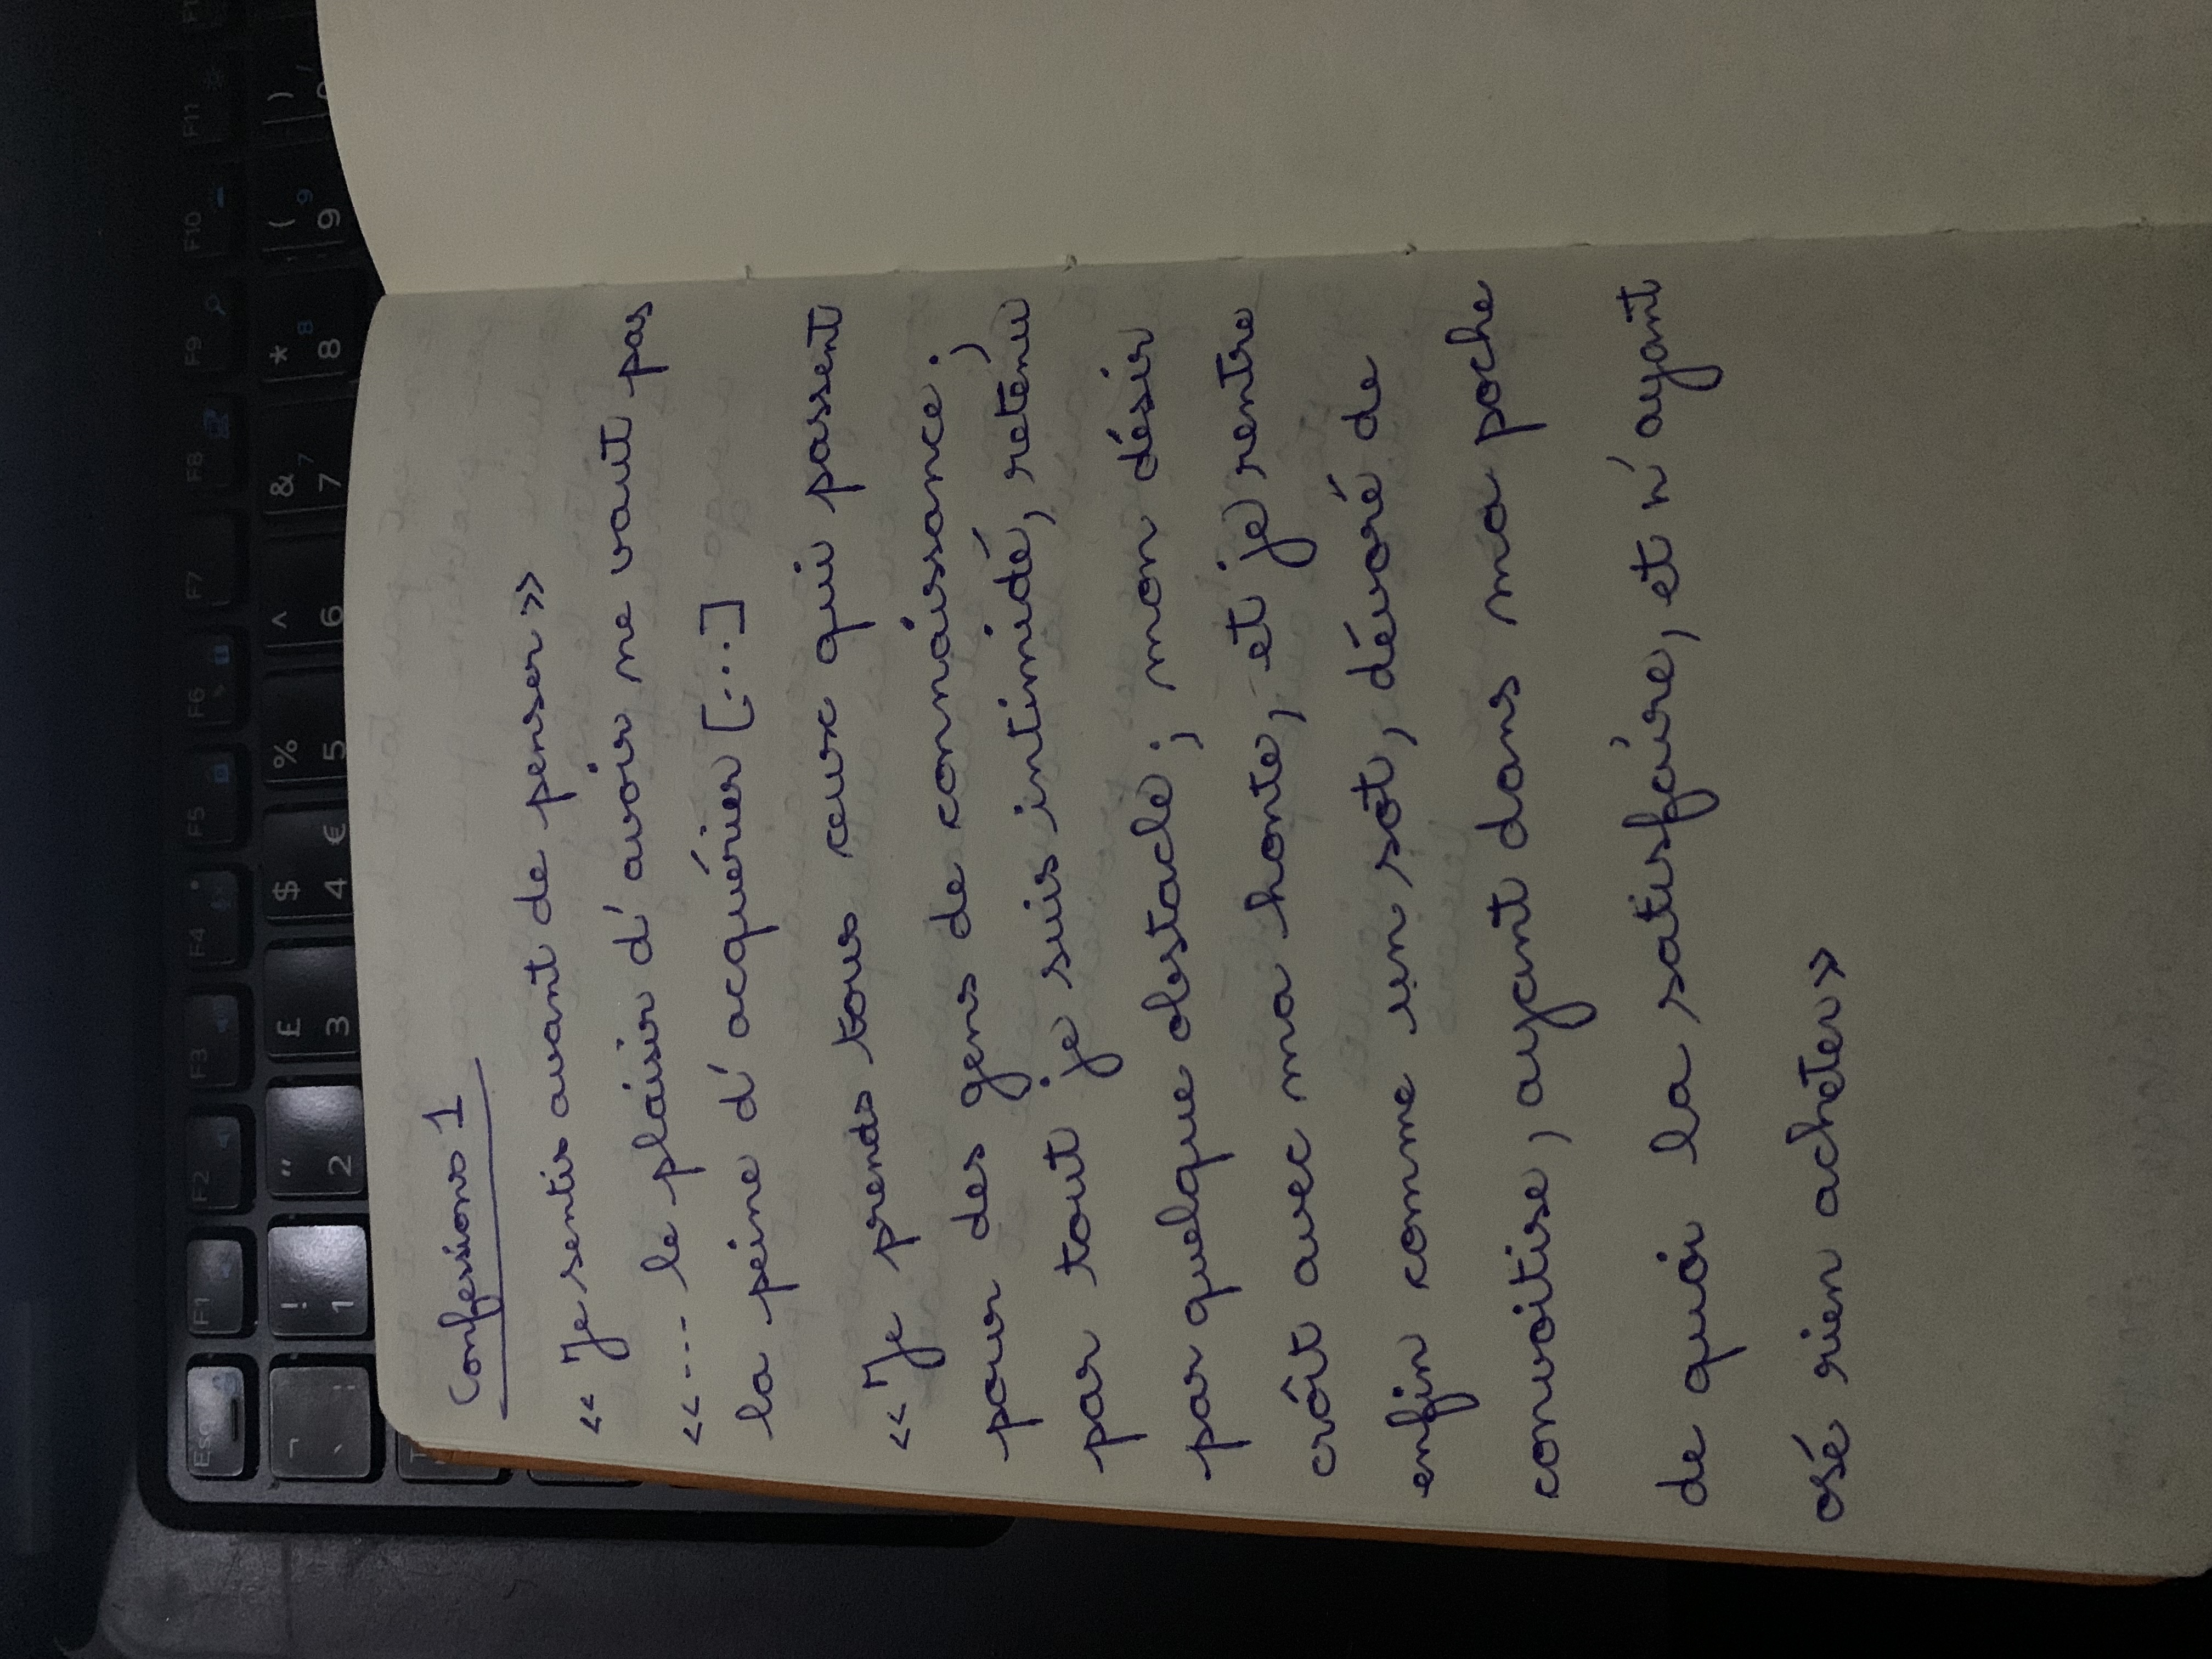 Esc F1 F2 F3 F4 F5 F6 F7 F8 F9 F10 F11
¬ ! " £ $ % ^ & * ( )
` ¦ 1 2 3 4 € 5 6 7 7 8 8 9 9
Confessions 1
« Je sentis avant de penser »
«--- le plaisir d'avoir ne vaut pas
la peine d'acquérier [...]
«Je prends tous ceux qui passent
pour des gens de connaissance ;
par tout je suis intimidé, retenu
par quelque obstacle ; mon désir
croît avec ma honte, et je rentre
enfin comme un sot, dévoré de
convoitise, ayant dans ma poche
de quoi la satisfaire, et n'ayant
osé rien acheter»